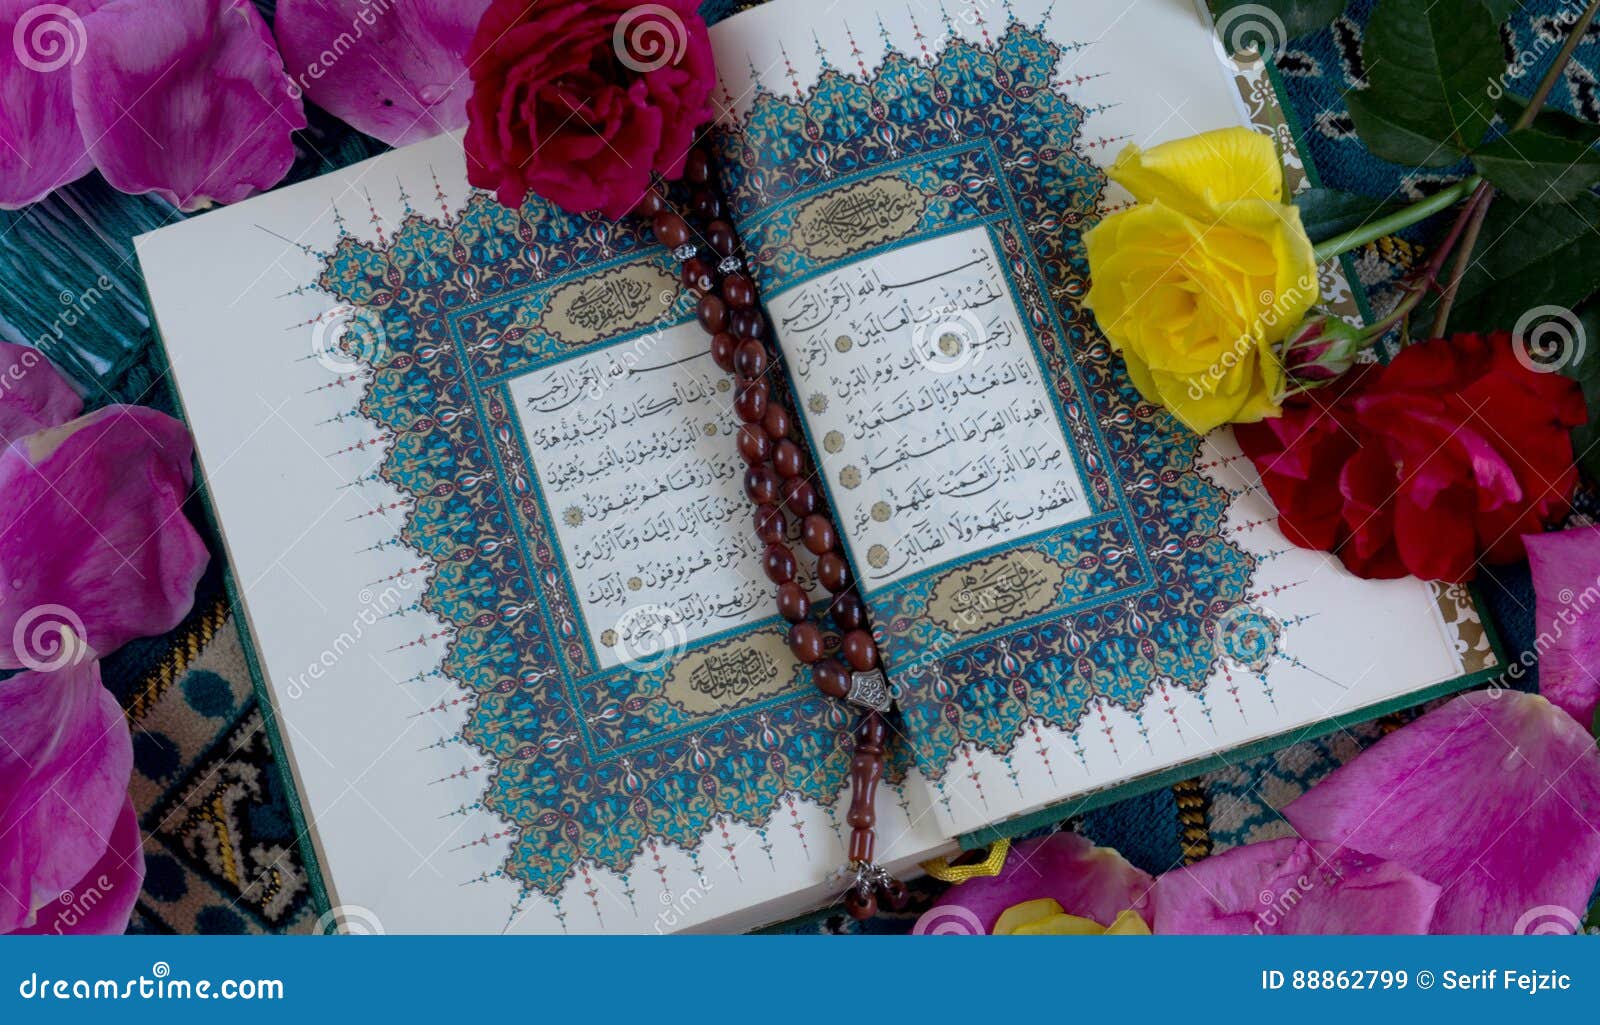 سورة فاتحة الكتاب
بِسْمِ اللَّهِ الرَّحْمَٰنِ الرَّحِيمِ
الْحَمْدُ لِلَّهِ رَبِّ الْعَالَمِينَ الرَّحْمَٰنِ
الرَّحِيمِ مَالِكِ يَوْمِ الدِّينِ
إِيَّاكَ نَعْبُدُ وَإِيَّاكَ نَسْتَعِينُ
اهْدِنَا الصِّرَاطَ الْمُسْتَقِيمَ
صِرَاطَ الَّذِينَ أَنْعَمْتَ عَلَيْهِمْ غَيْرِ
الْمَغْضُوبِ عَلَيْهِمْ وَلَا الضَّالِّينَ
بِسْمِ اللَّهِ الرَّحْمَٰنِ الرَّحِيمِ
ذَٰلِكَ الْكِتَابُ لَا رَيْبَ فِيهِ هُدًى
الَّذِينَ يُؤْمِنُونَ بِالْغَيْبِ وَيُقِيمُونَ
وَمِمَّا رَزَقْنَاهُمْ يُنْفِقُونَ
بِمَا أُنْزِلَ إِلَيْكَ وَمَا أُنْزِلَ مِنْ
بِالْآخِرَةِ هُمْ يُوقِنُونَ أُولَٰئِكَ
مِنْ رَبِّهِمْ وَأُولَٰئِكَ هُمُ الْمُفْلِحُونَ
dreamstime.com
ID 88862799 © Serif Fejzic